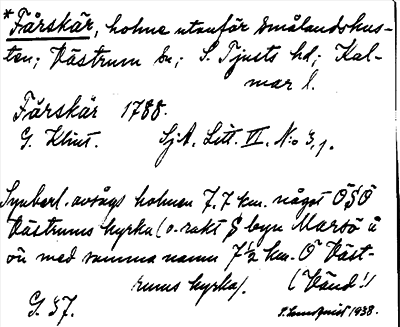 * Fårskär, holme utanför Smålandskus-
ten; Västrum sn; S. Tjusts hd; Kal-
mar l.
Fårskär 1788.
G. Klint. Sj.A. Litt. III. N:o 3, 1.
Synberl. avsågs holmen 7.7 km. något ÖSÖ
Västrums kyrka (o. rakt S byn Marsö å
ön med samma namn 7 1/2 km. Ö Väst-
rums kyrka). (Vänd!)
G. 37. S. Lundqvist 1938.